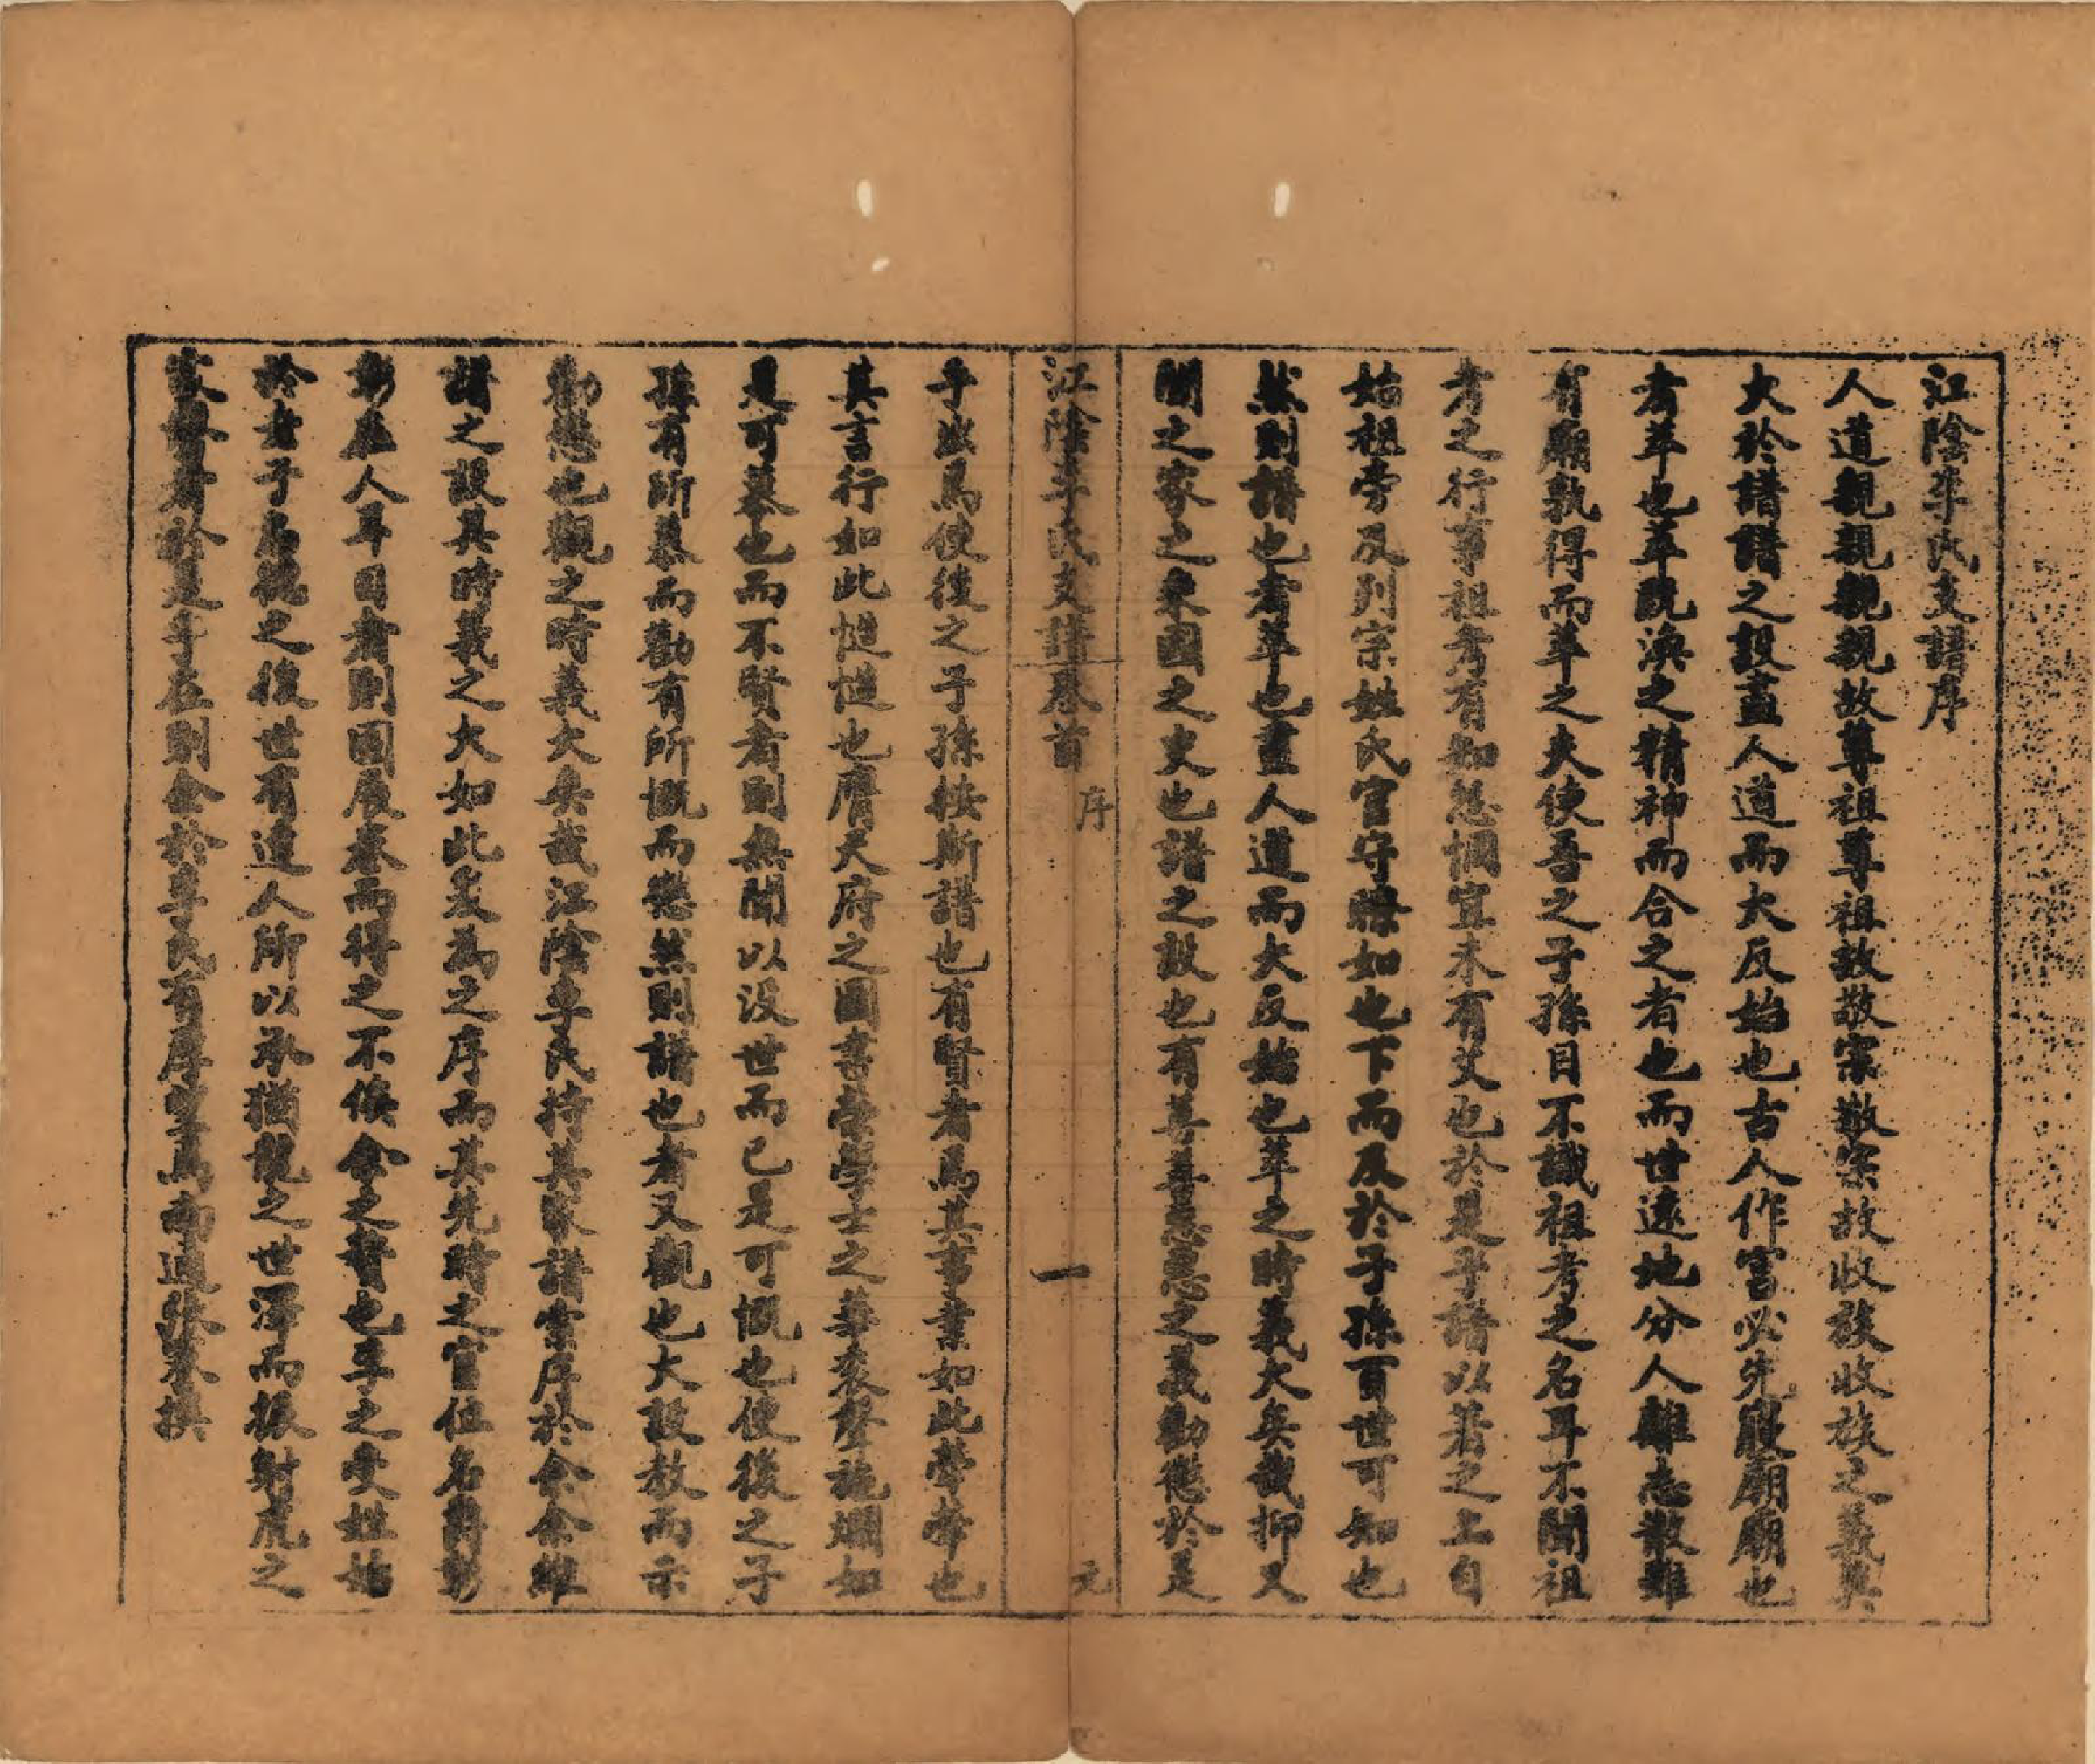 江陰李氏支譜序
人道親親親親故尊祖尊祖故敬宗敬宗故收族收族之義莫
大於譜譜之設盡人道而大反始也古人作室必先寢廟廟也
者萃也萃既渙之精神而合之者也而世遠地分人離志散雖
有廟孰得而萃之夫使吾之子孫目不識祖考之名耳不聞祖
考之行事祖考有知怨恫宜未有艾也於是乎譜以著之上自
始祖旁及列宗姓氏官守縣如也下而及於子孫百世可知也
然則譜也者萃也盡人道而大反始也萃之時義大矣哉抑又
聞之家之乘國之史也譜之設也有善善惡惡之義勸懲於是
江陰李氏支譜卷首 序 一 元
乎出焉使後之子孫按斯譜也有賢者焉其事業如此犖犖也
其言行如此慥慥也膺天府之圖書學士之華袞聲施爛如
是可慕也而不賢者則無聞以沒世而已是可慨也使後之子
孫有所慕而勸有所慨而懲然則譜也者又觀也大設教而示
勸懲也觀之時義大矣哉江陰李氏持其家譜索序於余余維
譜之設其時義之大如此爰為之序而其先時之官位名爵彰
彰在人耳目者則國展卷而得之不俟余之贅也李之受姓始
於老子老聃之後世有達人所以承猶龍之世澤而振射虎之
家聲者於是乎在則余於李氏有厚望焉南通張 撰